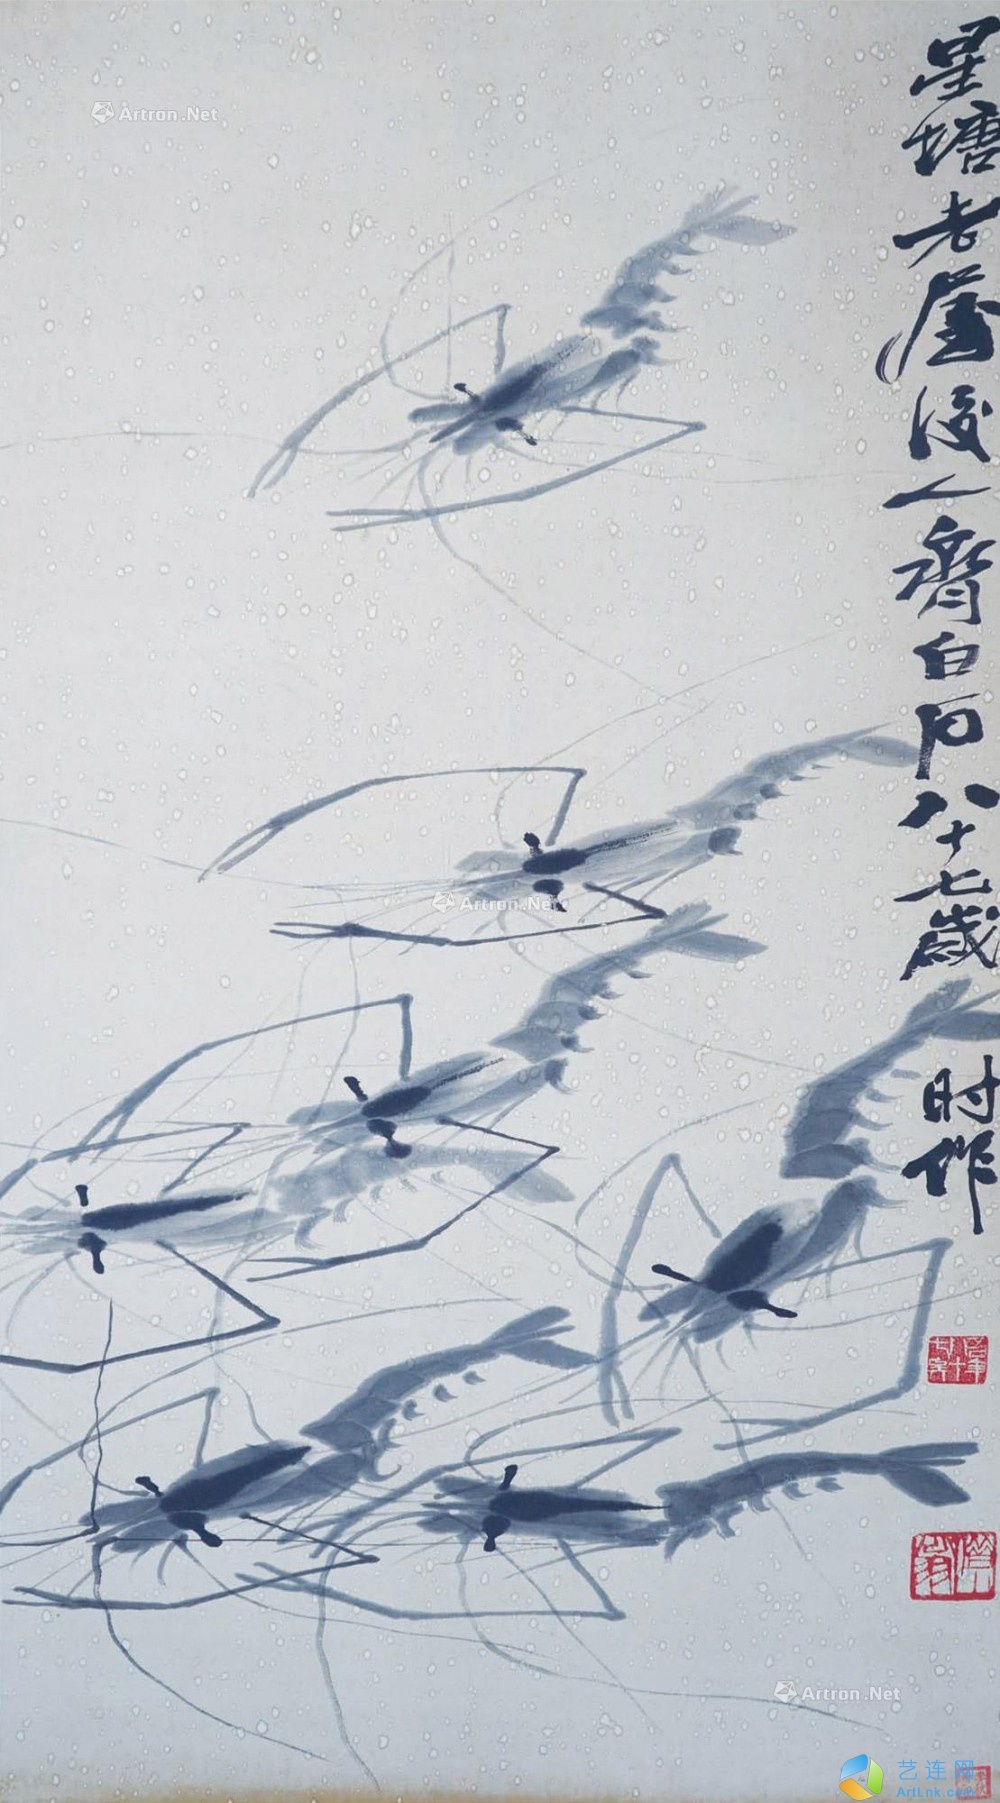 星塘老屋後人齊白石八十七歲
时作
Artron.Net
Artron.Net
Artron.Net
艺连网
ArtLnk.com